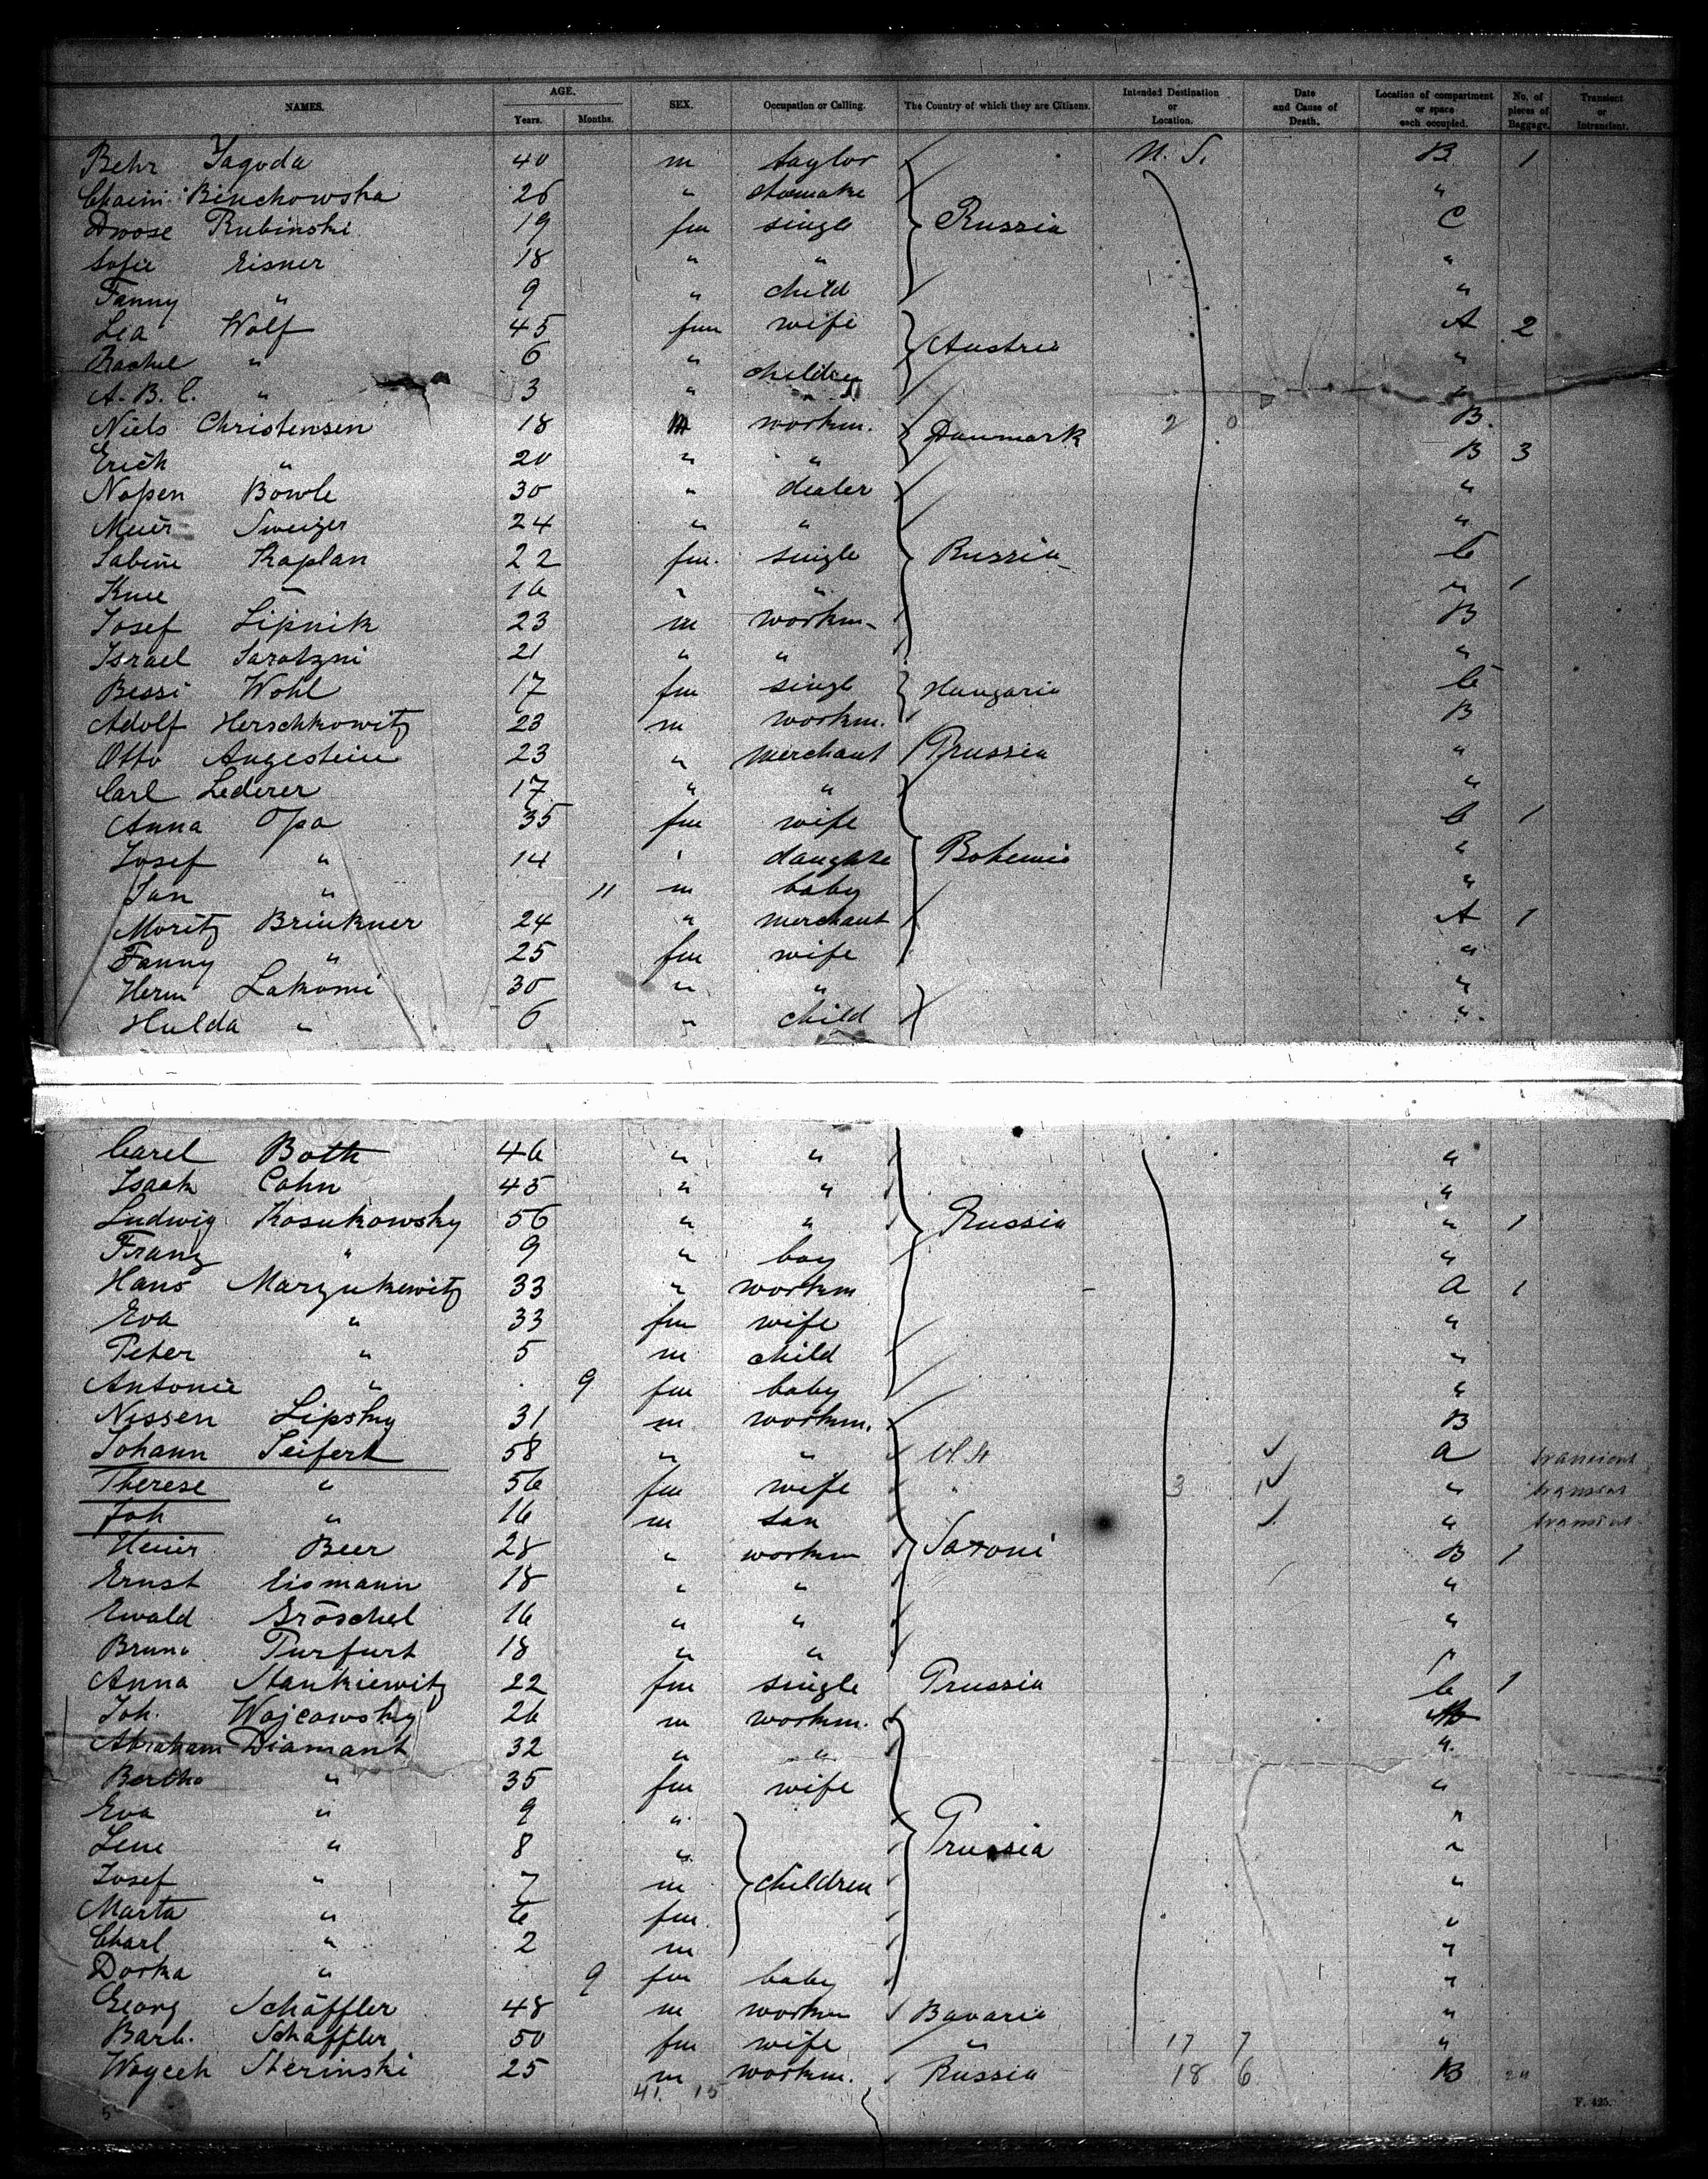 NAMES. AGE. Years. Months. SEX. Occupation or Calling. The Country of which they are Citizens. Intended Destination or Location. Date and Cause of Death. Location of compartment or space each occupied. No. of pieces of Baggage. Transient or Intransient.
Behr Jagoda 40 m taylor U.S. B 1
Chaim Binchowska 26 "
Rubinski 19 fm single Russia C
Sofie Eisner 18 " " "
Fanny " 9 " child "
Lea Wolf 45 fm wife A 2
Rachel " 6 " Austria "
A.B.C. " 3 " children "
Niels Christensen 18 m workm. B.
Erich " 20 " " Danmark B 3
Bowle 30 " dealer "
Meier Sweizer 24 " " "
Sabine Kaplan 22 fm. single Russia C
16 " " " 1
Josef Lipnik 23 m workm. B
Israel 21 " " "
Bessi Wohl 17 fm single Hungaria C
Adolf Herschkowitz 23 m workm. B
Otto Augestein 23 " merchant Prussia "
Carl Lederer 17 " " "
Anna Opa 35 fm wife C 1
Josef " 14 " daughte Bohemia "
Jan " 11 m baby "
Moritz Brinkner 24 " merchant A 1
Fanny " 25 fm wife "
Herm Lakomi 30 " " "
Hulda " 6 " child "
Carel Both 46 " " "
Isaak Cohn 45 " " "
Ludwig Kosukowsky 56 " " Russia " 1
Franz " 9 " boy "
Hans Marzukewitz 33 " workm A 1
Eva " 33 fm wife "
Peter " 5 m child "
Antonie " 9 fm baby "
Nissen Lipsky 31 m workm. B
Johann Seifert 58 " " U.St A transient
Therese " 56 fm wife " 3 " transient
Joh " 16 m son " transient
Heinr Beer 28 " workm Saxoni B 1
Ernst Eismann 18 " " "
Ewald Gröschel 16 " " "
Bruno Purfurt 18 " " "
Anna Stankiewitz 22 fm single Prussia C 1
Joh. Wojcowsky 26 m workm.
Abraham Diamant 32 " " "
Bertha " 35 fm wife "
Eva " 9 " "
Lene " 8 " Prussia "
Josef " 7 m children "
Marta " 6 fm "
Charl " 2 m "
Dorka " 9 fm baby "
Georg Schäffler 48 m workm Bavaria "
Barb. Schäffler 50 fm wife " 17 7 "
Woycech Sterinski 25 m workm. Russia 18 6 B
41 15
F. 425.